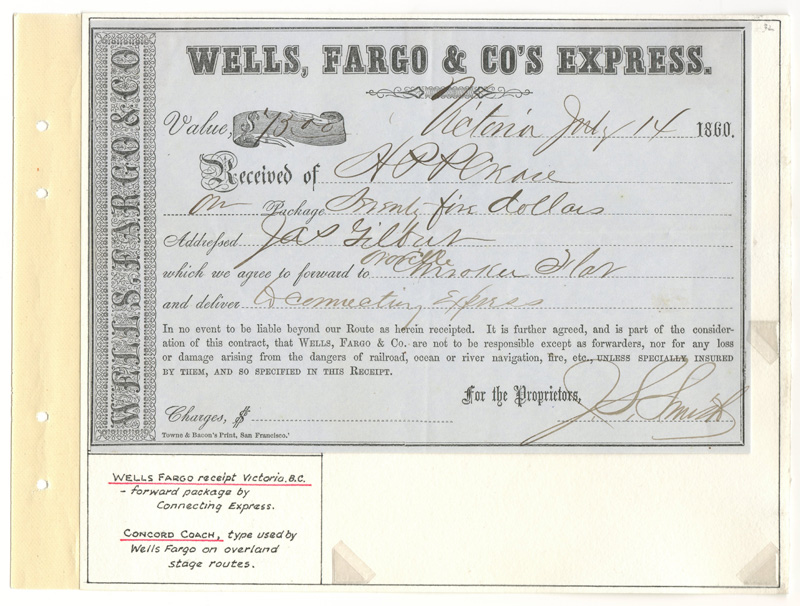 WELLS, FARGO & CO
WELLS, FARGO & CO'S EXPRESS.
Value, $75.00 Victoria July 14 1860.
Received of
One Package Seventy five dollars
Addressed Jas Gilbert
Oroville
which we agree to forward to Cherokee Flat
and deliver to connecting Express
In no event to be liable beyond our Route as herein receipted. It is further agreed, and is part of the consider-
ation of this contract, that WELLS, FARGO & CO. are not to be responsible except as forwarders, nor for any loss
or damage arising from the dangers of railroad, ocean or river navigation, fire, etc., UNLESS SPECIALLY INSURED
BY THEM, AND SO SPECIFIED IN THIS RECEIPT.
For the Proprietors,
J. S. Smith
Charges, $
Towne & Bacon's Print, San Francisco.
WELLS FARGO receipt Victoria. B.C.
- forward package by
Connecting Express.
CONCORD COACH, type used by
Wells Fargo on overland
stage routes.